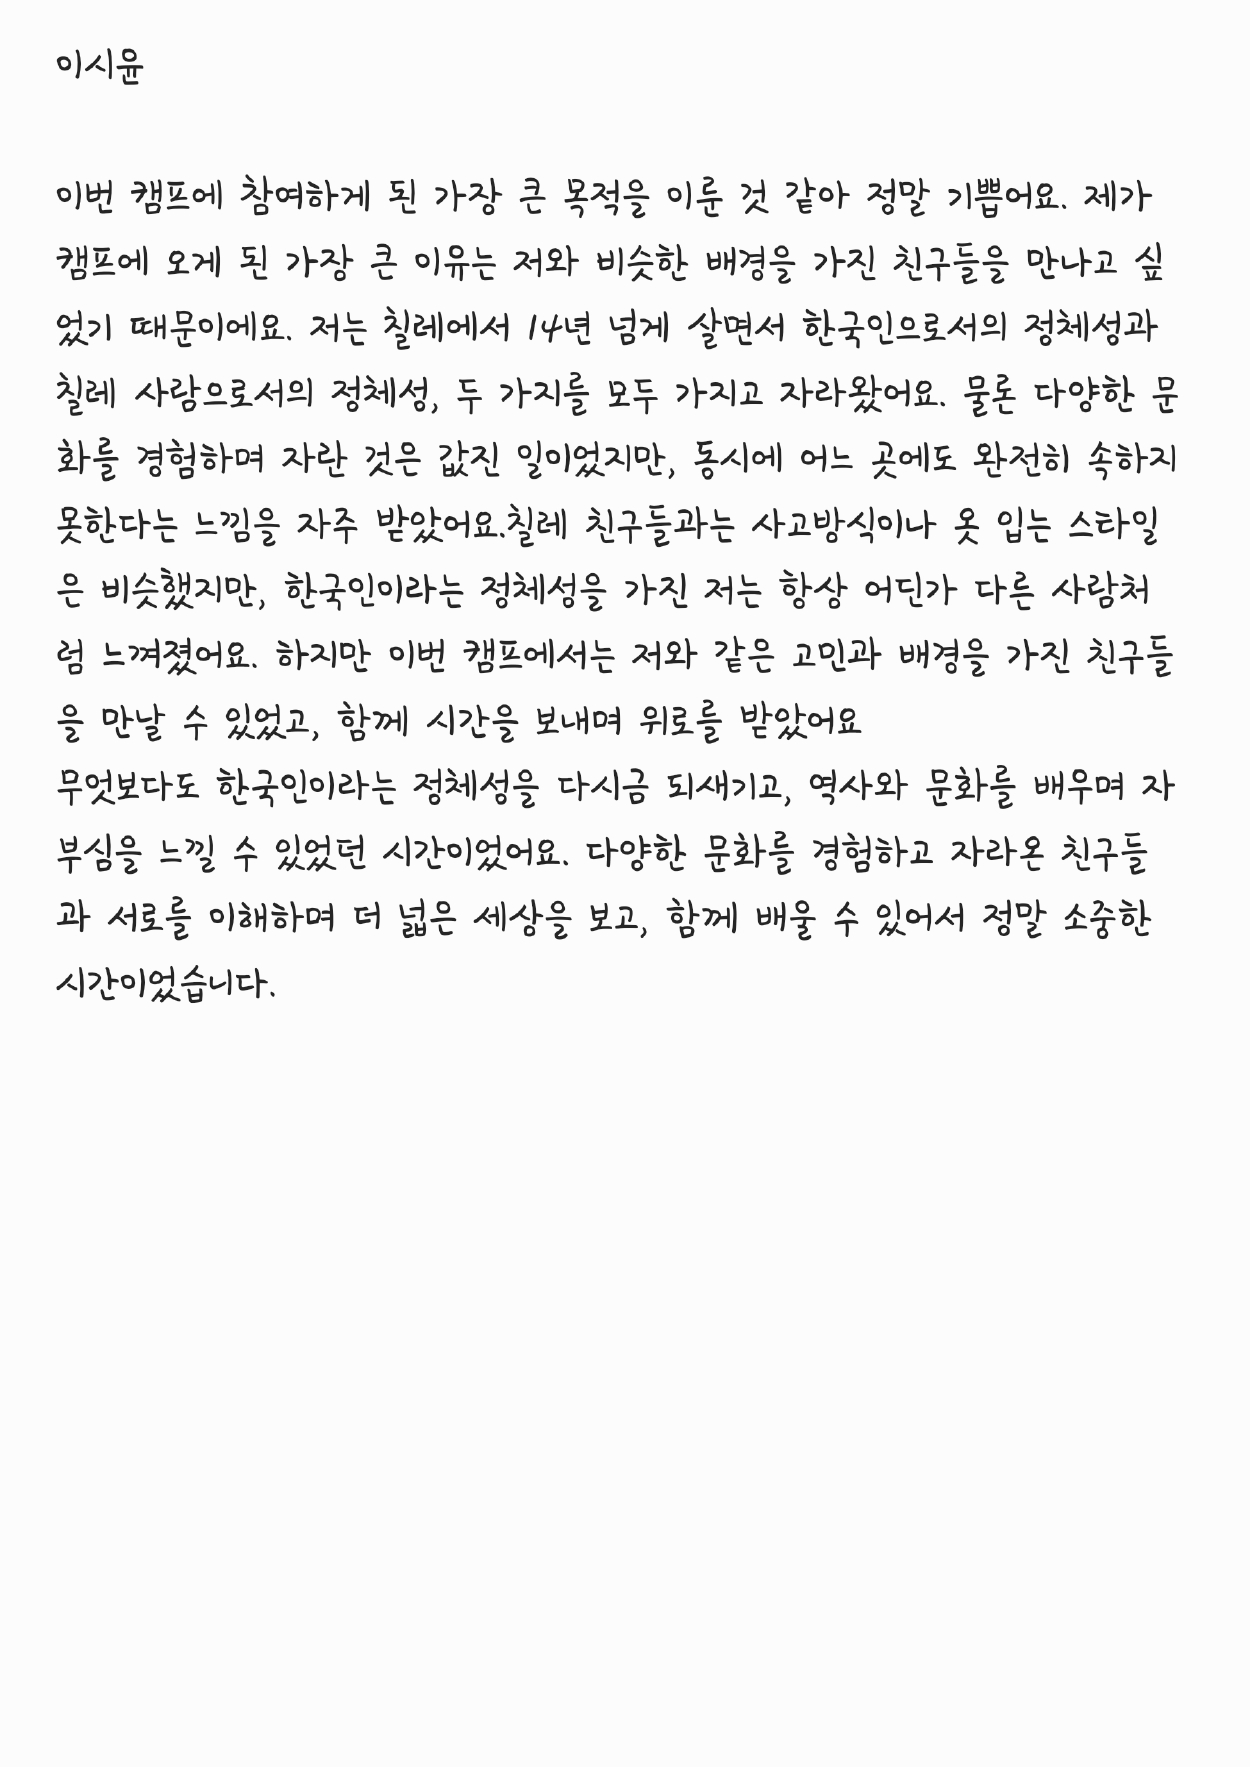 이시윤
이번 캠프에 참여하게 된 가장 큰 목적을 이룬 것 같아 정말 기쁩어요. 제가
캠프에 오게 된 가장 큰 이유는 저와 비슷한 배경을 가진 친구들을 만나고 싶
었기 때문이에요. 저는 칠레에서 14년 넘게 살면서 한국인으로서의 정체성과
칠레 사람으로서의 정체성, 두 가지를 모두 가지고 자라왔어요. 물론 다양한 문
화를 경험하며 자란 것은 값진 일이었지만, 동시에 어느 곳에도 완전히 속하지
못한다는 느낌을 자주 받았어요.칠레 친구들과는 사고방식이나 옷 입는 스타일
은 비슷했지만, 한국인이라는 정체성을 가진 저는 항상 어딘가 다른 사람처
럼 느껴졌어요. 하지만 이번 캠프에서는 저와 같은 고민과 배경을 가진 친구들
을 만날 수 있었고, 함께 시간을 보내며 위로를 받았어요
무엇보다도 한국인이라는 정체성을 다시금 되새기고, 역사와 문화를 배우며 자
부심을 느낄 수 있었던 시간이었어요. 다양한 문화를 경험하고 자라온 친구들
과 서로를 이해하며 더 넓은 세상을 보고, 함께 배울 수 있어서 정말 소중한
시간이었습니다.